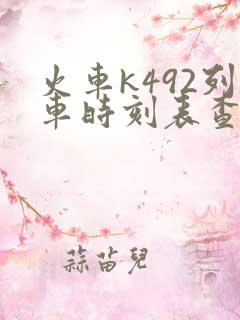 火車K492列
車時刻表查
蒜苗兒